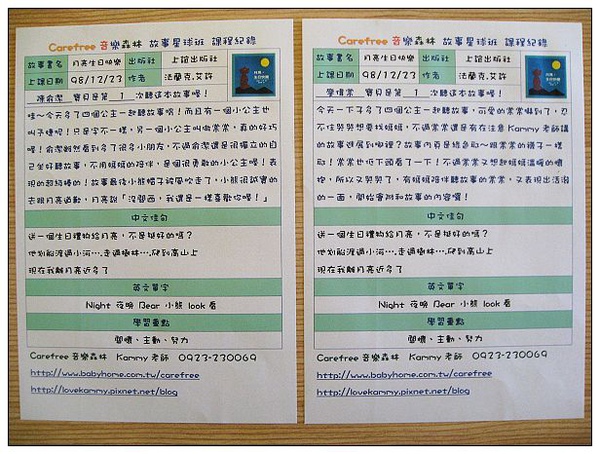 Carefree 音樂森林 故事星球班 課程紀錄
故事書名 月亮生日快樂 出版社 上誼出版社
上課日期 98/12/23 作者 法蘭克.艾許
陳俞潔 寶貝是第 1 次聽這本故事喔!
哇~今天多了四個公主一起聽故事唷!而且有一個小公主也
叫子婕呢!只是字不一樣,另一個小公主叫做棠棠,真的好巧
喔!俞潔雖然看到多了很多小朋友,不過俞潔還是很獨立的自
己坐好聽故事,不用媽媽的陪伴,是個很勇敢的小公主喔!表
現的超級棒的!故事最後小熊帽子被風吹走了,小熊很誠實的
去跟月亮道歉,月亮說「沒關西,我還是一樣喜歡你喔!」
中文佳句
送一個生日禮物給月亮,不是挺好的嗎?
他划船渡過小河…走過樹林…爬到高山上
現在我離月亮近多了
英文單字
Night 夜晚 Bear 小熊 look 看
學習重點
關懷、主動、努力
Carefree 音樂森林 Kammy 老師 0923-230069
http://www.babyhome.com.tw/carefree
http://lovekammy.pixnet.net/blog
Carefree 音樂森林 故事星球班 課程紀錄
故事書名 月亮生日快樂 出版社 上誼出版社
上課日期 98/12/23 作者 法蘭克.艾許
寶貝是第 1 次聽這本故事喔!
今天一下子多了四個公主一起聽故事,可愛的棠棠嚇到了,忍
不住哭哭想要找媽媽,不過棠棠還是有在注意 Kammy 老師講
的故事進展到哪裡?故事內頁是綠色耶~跟棠棠的襪子一樣
耶!棠棠也低下頭看了一下!不過棠棠又想起媽媽溫暖的懷
抱,所以又哭哭了,有媽媽陪伴聽故事的棠棠,又表現出活潑
的一面,開始會附和故事的內容喔!
中文佳句
送一個生日禮物給月亮,不是挺好的嗎?
他划船渡過小河…走過樹林…爬到高山上
現在我離月亮近多了
英文單字
Night 夜晚 Bear 小熊 look 看
學習重點
關懷、主動、努力
Carefree 音樂森林 Kammy 老師 0923-230069
http://www.babyhome.com.tw/carefree
http://lovekammy.pixnet.net/blog